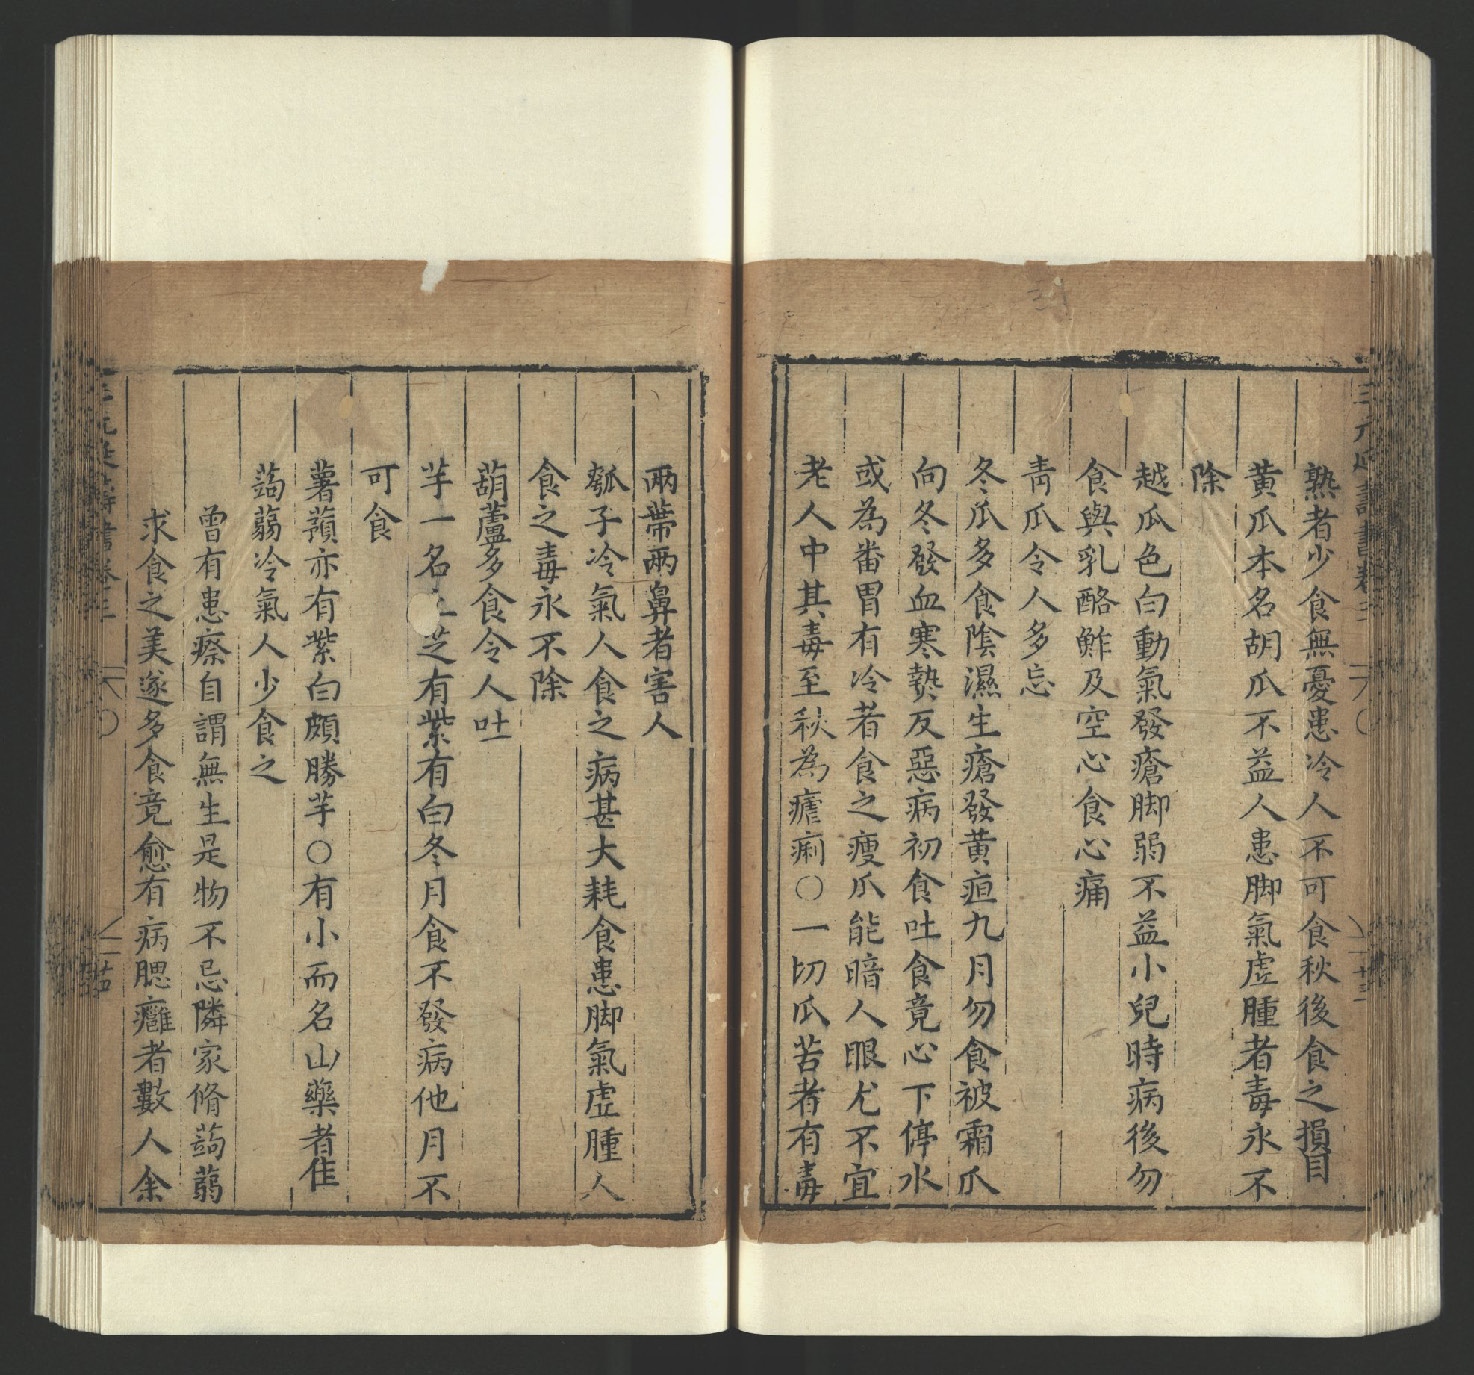 熟者少食無憂患冷人不可食秋後食之損目
黃瓜本名胡瓜不益人患脚氣虛腫者毒永不
除
越瓜色白動氣發瘡脚弱不益小兒時病後勿
食與乳酪鮓及空心食心痛
青瓜令人多忘
冬瓜多食陰濕生瘡發黃疸九月勿食被霜瓜
向冬發血寒熱反惡病初食吐食竟心下停水
或為畨胃有冷者食之瘦瓜能暗人眼尤不宜
老人中其毒至秋為瘧痢○一切瓜苦者有毒
兩蔕兩鼻者害人
瓠子冷氣人食之病甚大耗食患脚氣虛腫人
食之毒永不除
葫蘆多食令人吐
芋一名土芝有紫有白冬月食不發病他月不
可食
薯蕷亦有紫白頗勝芋○有小而名山藥者佳
蒟蒻冷氣人少食之
曾有患瘵自謂無生是物不忌隣家脩蒟蒻
求食之美遂多食竟愈有病腮癰者數人余